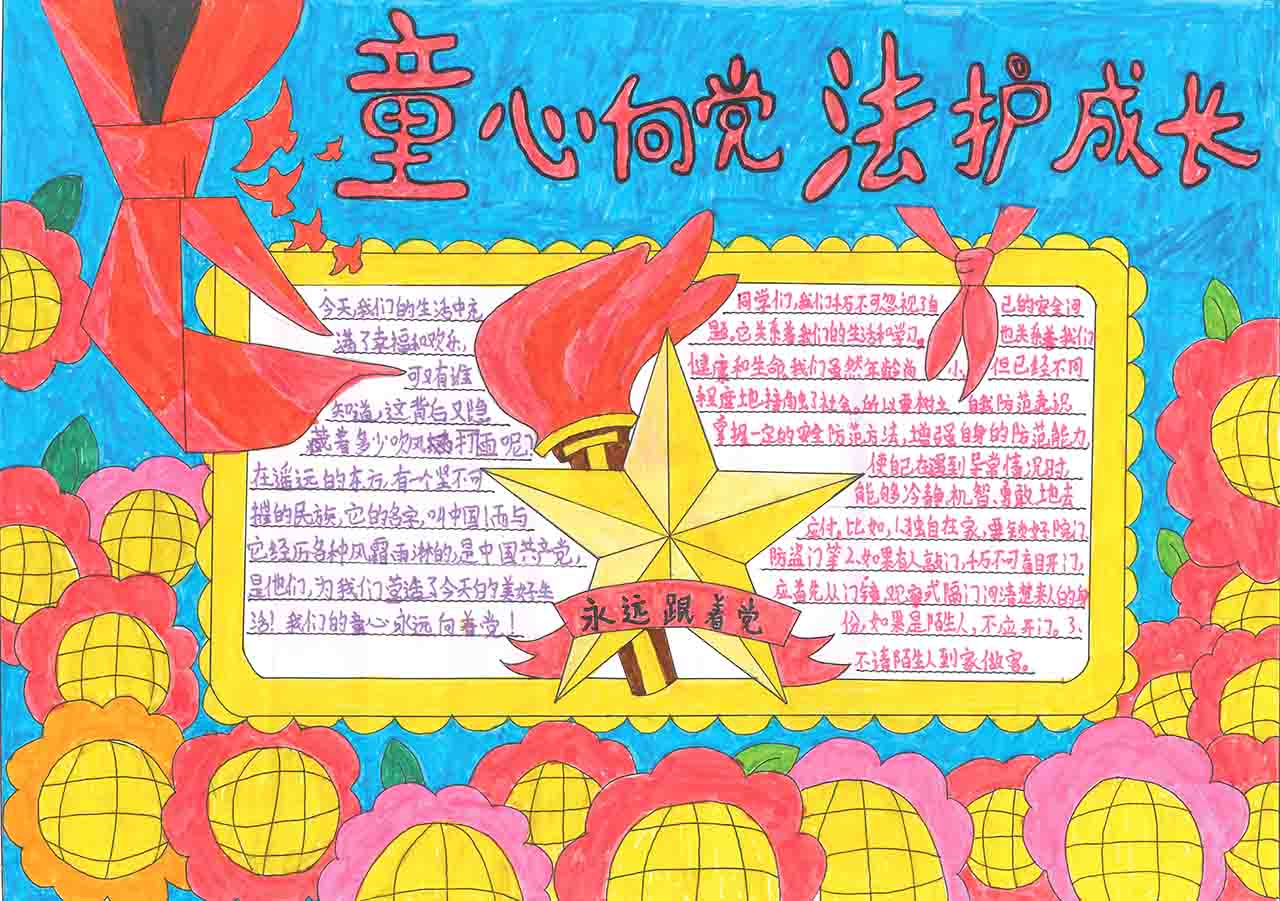 童心向党 法护成长
今天我们的生活中充
满了幸福和欢乐,
可又有谁
知道,这背后又隐
藏着多少吹风打雨呢?
在遥远的东方,有一个坚不可
摧的民族,它的名字,叫中国!而与
它经历各种风霜雨淋的,是中国共产党,
是他们,为我们营造了今天的美好生
活!我们的童心永远向着党!
永远跟着党
同学们,我们千万不可忽视了自己的安全问
题,它关系着我们的生活和学习。也关系着我们
健康和生命,我们虽然年龄尚小,但已经不同
程度地接向了社会。所以要树立自我防范意识
掌握一定的安全防范方法,增强自身的防范能力,
使自己在遇到异常情况时,
能够冷静、机智、勇敢地去
应付。比如,1.独自在家,要锁好院门
防盗门等2、如果有人敲门,千万不可盲目开门,
应首先从门镜观察或隔门问清楚来人的身
份,如果是陌生人,不应开门。3、
不请陌生人到家做客。